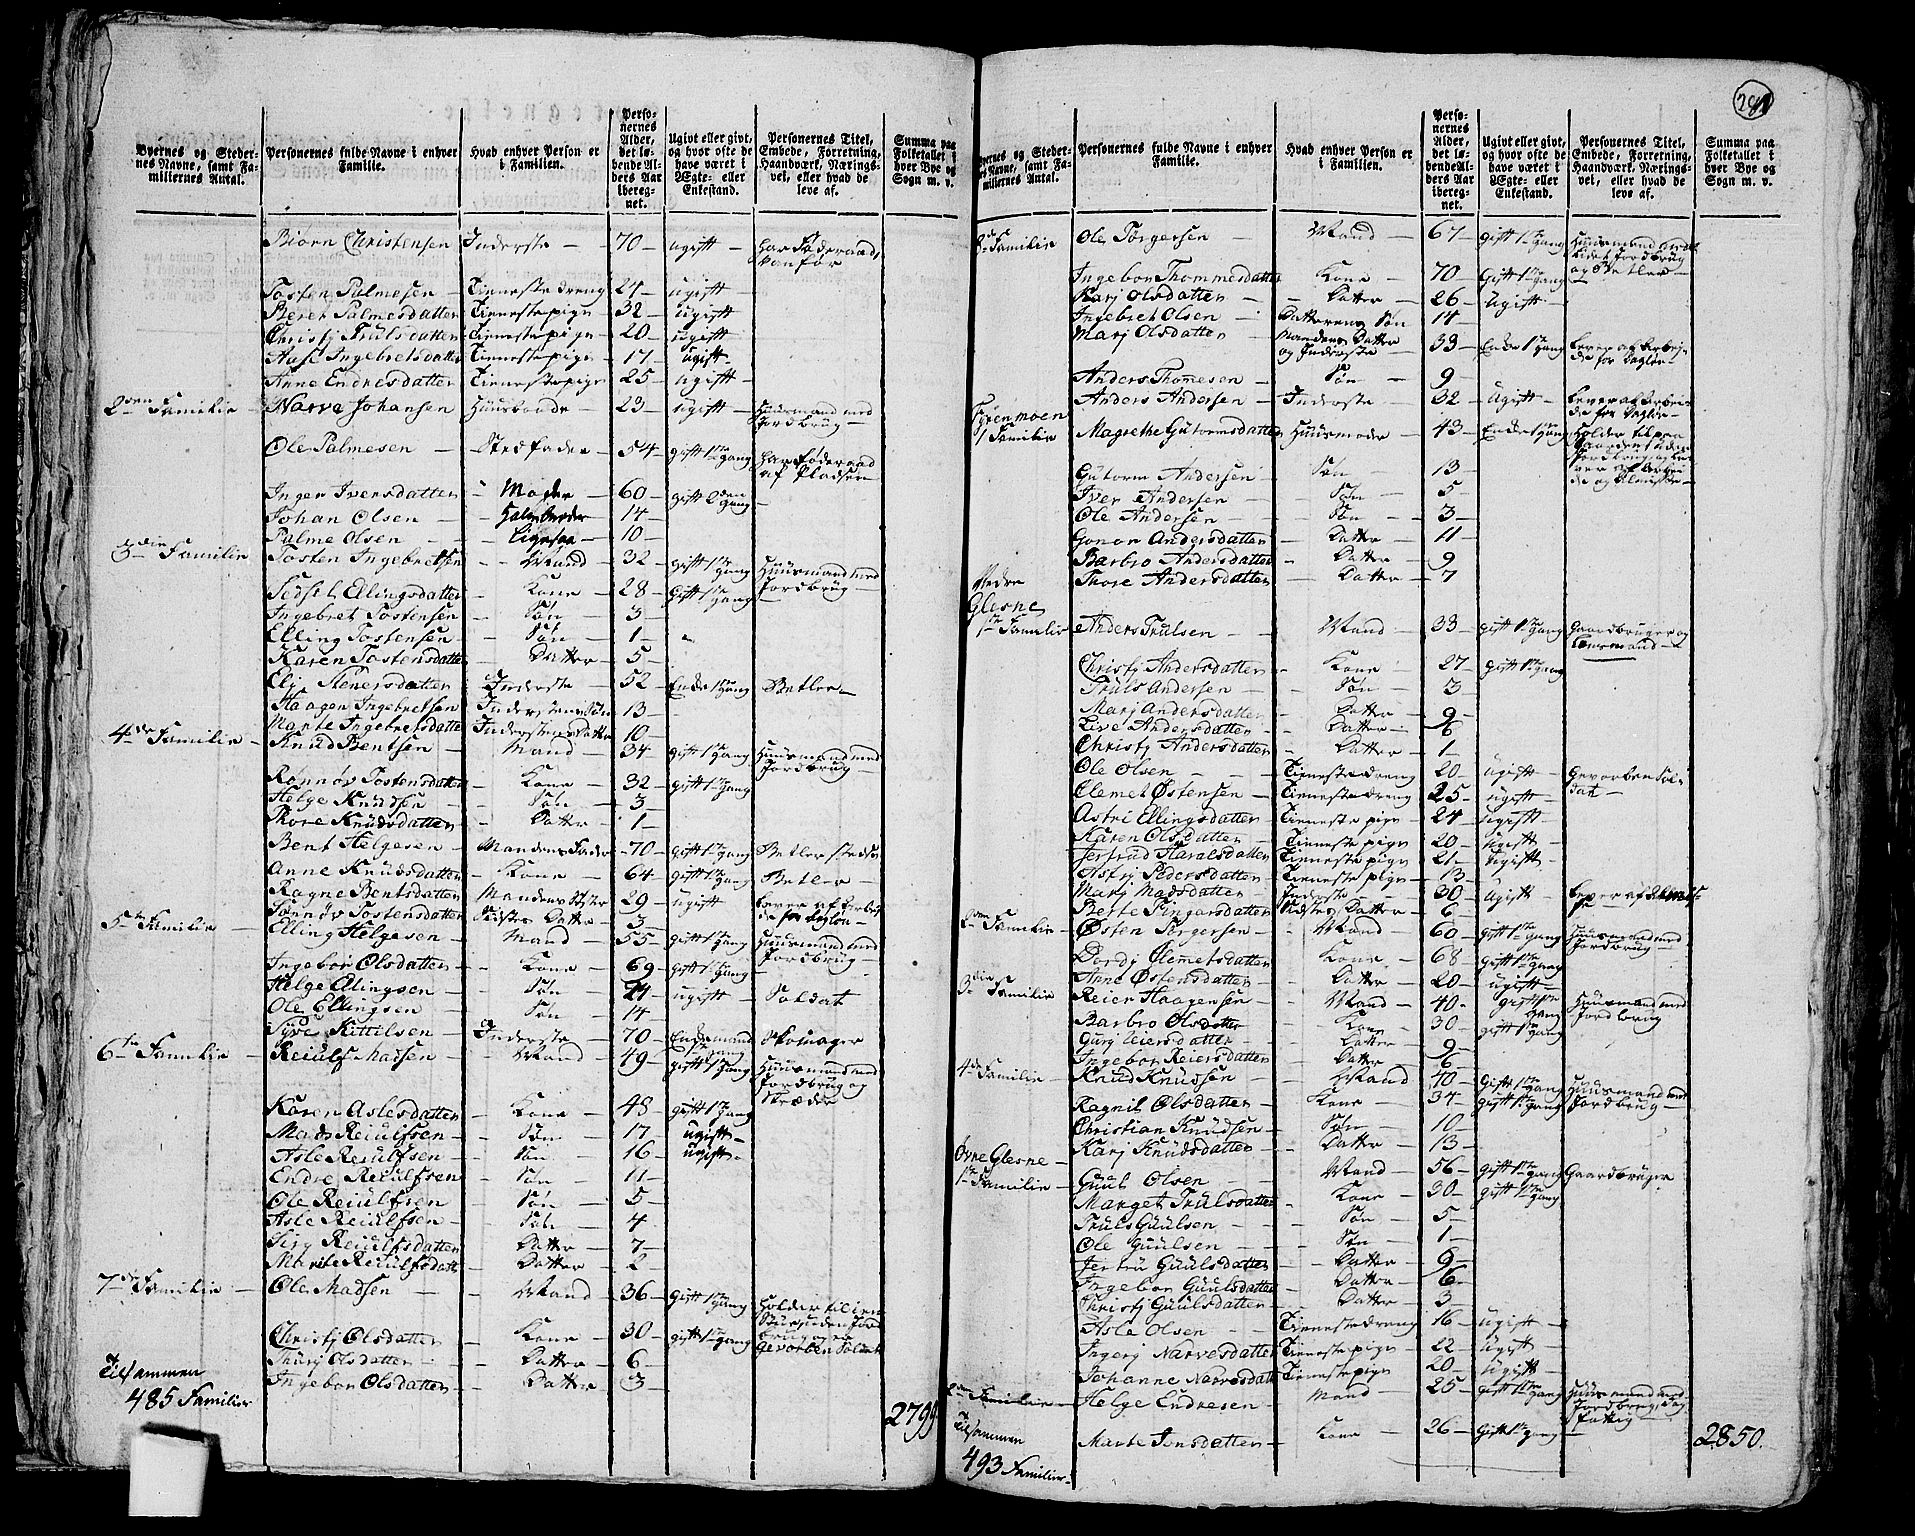 281
Byernes og Steder-
nes Navne, samt Fa-
miliernes Antal.
Personernes fulde Navne i enhver
Familie.
Hvad enhver Person er
i Familien.
Perso-
nernes
Alder,
det lø-
bende Al-
ders Aar
ibereg-
net.
Ugivt eller givt,
og hvor ofte de
have været i
Ægte- eller
Enkestand.
Personernes Titel,
Embede, Forretning,
Haandværk, Nærings-
vei, eller hvad de
leve af.
Summa paa
Folketallet i
hver Bye og
Sogn m. v.
Biørn Christensen Inderste 70 ugift har Føderaad,
Tosten Palmesen Tienestedreng 24 ugift
Beret Palmesdatter Tienestepige 32 ugift
Christj Trulsdatter Tienestepige 20 ugift
Aase Ingebretsdatter Tienestepige 17 ugift
Anne Endresdatter Tienestepige 25 ugift
2den Familie Narve Johansen Huusbonde 23 ugift Huusmand med
Jordbrug
Ole Palmesen Stedfader 54 gift 1te Gang har Føderaad
af Pladsen
Inger Iversdatter Moder 60 gift 2den Gang
Johan Olsen Halvbroder 14
Palme Olsen Ligesaa 10
3die Familie Tosten Ingebretsen Mand 32 gift 1te Gang Huusmand med
Jordbrug
Sidsel Ellingsdatter Kone 28 Gift 1te Gang
Ingebret Tostensen Søn 3
Elling Tostensen Søn 1
Karen Tostensdatter Datter 5
Elj Stenersdatter Inderste 52 Enke 1 Gang Betler
Haagen Ingebretsen Inderstens Søn 13
Marte Ingebretsdatter Inderstens Datter 10
4de Familie Knud Bentsen Mand 34 gift 1te Gang Huusmand med
Jordbrug
Rønnøv Tostensdatter Kone 32 gift 1te Gang
Helge Knudsen Søn 3
Thore Knudsdatter Datter 1
Bent Helgesen Mandens Fader 70 gift 1te Gang Betler
Anne Knudsdatter Kone 64 gift 1te Gang Betler
Ragne Bentsdatter Mandens Syster 29 ugift lever af Arbei-
de for Dagløn
Sønnøv Tostensdatter Sidstes Datter 3
5te Familie Elling Helgesen Mand 55 gift 1te Gang Huusmand med
Jordbrug
Ingebor Olsdatter Kone 69 gift 1te Gang
Helge Ellingsen Søn 24 ugift Soldat
Ole Ellingsen Søn 14
Syver Kittilsen Inderste 70 Enkemand Skomager
6te Familie Reiulf Madsen Mand 49 gift 1te Gang Huusmand med
Jordbrug og
Skræder
Karen Aslesdatter Kone 43 gift 1te Gang
Mads Reiulfsen Søn 17 ugift
Asle Reiulfsen Søn 16 ugift
Endre Reiulfsen Søn 11
Ole Reiulfsen Søn 5
Asle Reiulfsen Søn 4
Sigj Reiulfsdatter Datter 7
Marte Reiulfsdatt Datter 2
7de Familie Ole Madsen Mand 36 gift 1te Gang
Christj Olsdatter Kone 30 gift 1te Gang gevorben Soldat
Thurj Olsdatter Datter 6
Ingebor Olsdatter Datter 3
Tilsammen
485 Familier
2799
Byernes og Steder-
nes Navne, samt Fa-
miliernes Antal.
Personernes fulde Navne i enhver
Familie.
Hvad enhver Person er
i Familien.
Perso-
nernes
Alder,
det lø-
bende Al-
ders Aar
ibereg-
net.
Ugivt eller givt,
og hvor ofte de
have været i
Ægte- eller
Enkestand.
Personernes Titel,
Embede, Forretning,
Haandværk, Nærings-
vei, eller hvad de
leve af.
Summa paa
Folketallet i
hver Bye og
Sogn m. v.
Familie Ole Torgersen Mand 67 gift 1te Gang Huusmand med
lidet Jordbrug
og Betler
Ingebor Thommesdatter Kone 70 Gift 1te Gang
Karj Olsdatter Datter 26 Ugift
Ingebret Olsen Datterens Søn 14
Marj Olsdatter Mandens Datter
og Inderste 33 Enke 1te Gang lever af Arbei-
de for Dagløn
Anders Thomesen Søn 9
Anders Andersen Inderste 32 Ugift lever af Arbei-
de for Dagløn
1 Familie Magrethe Gutormsdatter Huusmoder 43 Enke 1 Gang
Gutorm Andersen Søn 13
Iver Andersen Søn 5
Ole Andersen Søn 3
Gonor Andersdatter Datter 11
Barbro Andersdatter Datter 9
Thore Andersdatter Datter 7
Nedre
Glesne
1te Familie Anders Trulsen Mand 33 gift 1te Gang Gaardbruger og
Lensmand
Christj Andersdatter Kone 27 gift 1te Gang
Truls Andersen Søn 3
Marj Andersdatter Datter 9
Live Andersdatter Datter 6
Christj Andersdatter Datter 1
Ole Olsen Tienestedreng 20 Ugift Gevorben Sol-
dat
Clemet Østensen Tienestedreng 25 ugift
Astri Ellingsdatter Tienestepige 24 ugift
Karen Olsdatter Tienestepige 20 Ugift
Jertrud Haralsdatter Tienestepige 21 Ugift
Astrj Pedersdatter Tienestepige 13
Marj Madsdatter Inderste 30 Ugift lever af Almisse
Berte Fingarsdatter Sidstes Datter 6
2den Familie Østen Torgersen Mand 60 gift 1te Gang Huusmand med
Jordbrug
Dordj Clemetsdatter Kone 68 gift 1te Gang
Anne Østensdatter Datter 20 ugift
3die Familie Reier Haagensen Mand 40 gift 1te Gang Huusmand med
Jordbrug
Barbro Olsdatter Kone 30 gift 1te Gang
Gurj Reiersdatter Datter 9
Ingebor Reiersdatter Datter 6
4de Familie Knud Knudsen Mand 40 Gift 1te Gang Huusmand med
Jordbrug
Ragnil Olsdatter Kone 34 gift 1te Gang
Christian Knudsen Søn 10
Karj Knudsdatter Datter 13
Øvre Glesne
1te Familie Guul Olsen Mand 56 gift 1te Gang Gaardbruger
Marget Trulsdatter Kone 30 gift 1te Gang
Truls Guulsen Søn 5
Ole Guulsen Søn 1
Jertru Guulsdatter Datter 9
Ingebor Guulsdatter Datter 6
Christj Guulsdatter Datter 3
Asle Olsen Tienestedreng 16 Ugift
Ingerj Narvesdatter Tienestepige 22 Ugift
Johanne Narvesdatt Tienestepige 20 Ugift
2den Familie Helge Endresen Mand 25 gift 1te Gang Huusmand med
Jordbrug, dog
fattig
Marte Jonsdatter Kone 26 Gift 1te Gang
Tilsammen
493 Familier
2850.